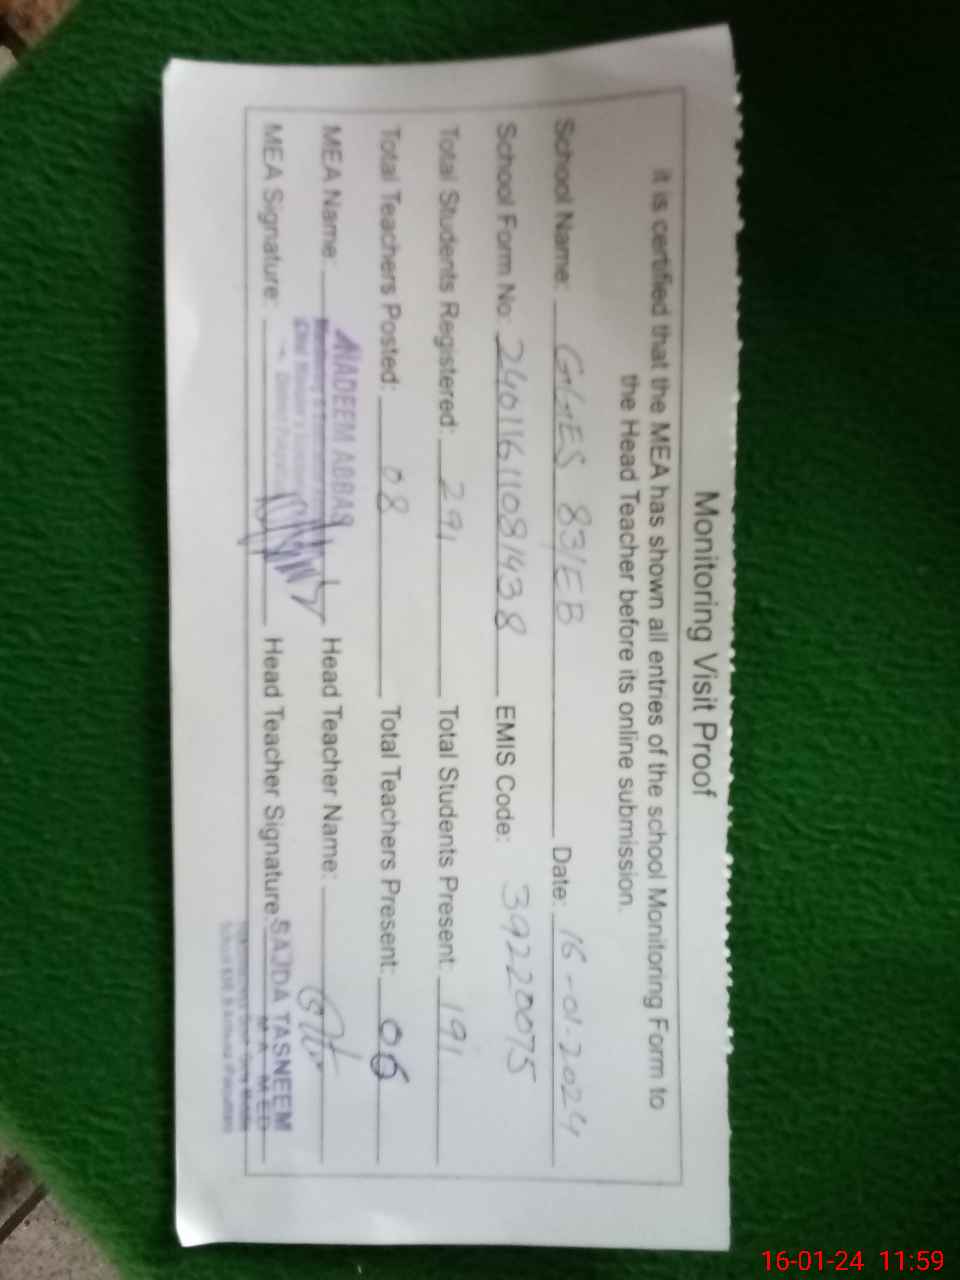 Monitoring Visit Proof
it is certified that the MEA has shown all entries of the school Monitoring Form to
the Head Teacher before its online submission.
School Name: GGES 83/EB Date: 16-01-2024
School Form No: 2401161081438 EMIS Code: 39220075
Total Students Registered: 291 Total Students Present: 191
Total Teachers Posted: 08 Total Teachers Present: 06
MEA Name: NADEEM ABBAS Head Teacher Name:
MEA Signature: Head Teacher Signature: SAJDA TASNEEM
M.A M.ED
16-01-24 11:59